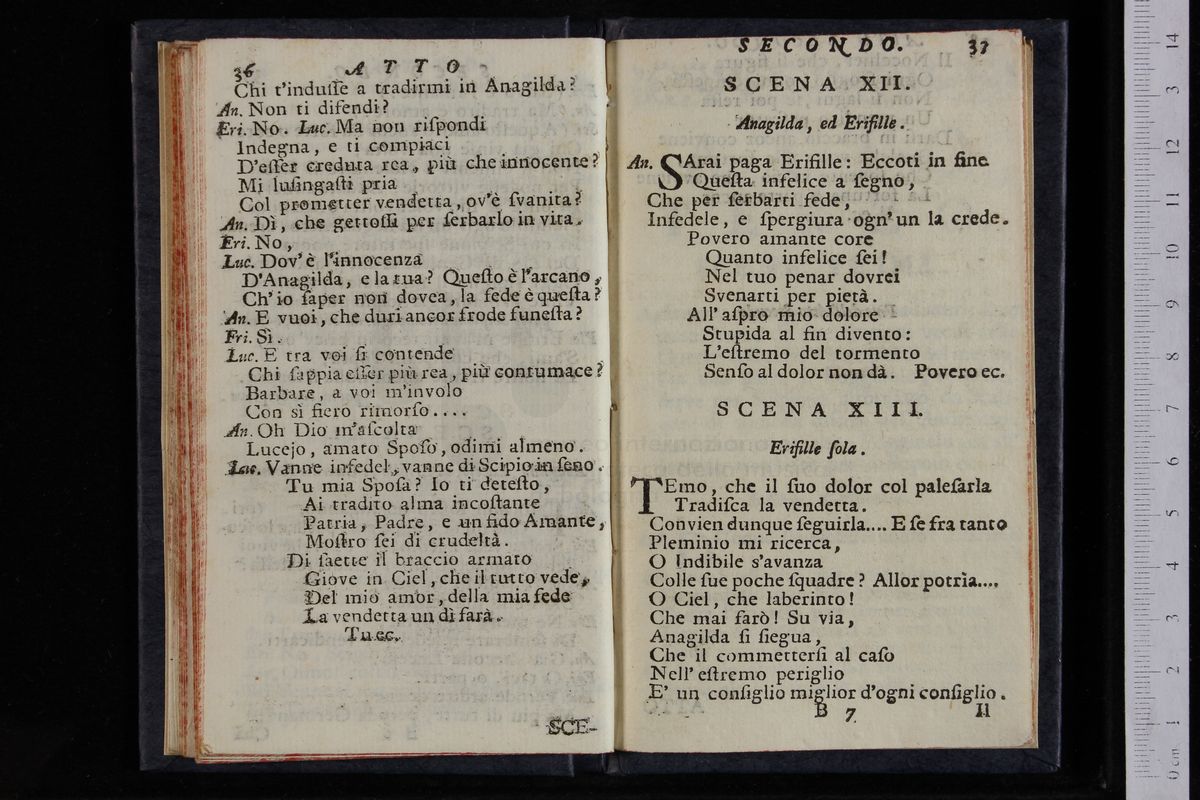 36 ATTO
Chi t'indusse a tradirmi in Anagilda?
An. Non ti difendi?
Eri. No. Luc. Ma non rispondi
Indegna, e ti compiaci
D'esser creduta rea, più che innocente?
Mi lusingasti pria
Col prometter vendetta, ov'è svanita?
An. Dì, che gettossi per serbarlo in vita.
Eri. No,
Luc. Dov'è l'innocenza
D'Anagilda, e la tua? Questo è l'arcano,
Ch'io saper non dovea, la fede è questa?
An. E vuoi, che duri ancor frode funesta?
Eri. Sì.
Luc. E tra voi si contende
Chi sappia esser più rea, più contumace?
Barbare, a voi m'involo
Con sì fiero rimorso....
An. Oh Dio m'ascolta
Lucejo, amato Sposo, odimi almeno.
Luc. Vanne infedel, vanne di Scipio in seno.
Tu mia Sposa? Io ti detesto,
Ai tradito alma incostante
Patria, Padre, e un fido Amante,
Mostro sei di crudeltà.
Di saette il braccio armato
Giove in Ciel, che il tutto vede,
Del mio amor, della mia fede
La vendetta un dì farà.
Tu ec.
SCE-
SECONDO. 37
SCENA XII.
Anagilda, ed Erifille.
An. SArai paga Erifille: Eccoti in fine
Questa infelice a segno,
Che per serbarti fede,
Infedele, e spergiura ogn'un la crede.
Povero amante core
Quanto infelice sei!
Nel tuo penar dovrei
Svenarti per pietà.
All'aspro mio dolore
Stupida al fin divento:
L'estremo del tormento
Senso al dolor non dà. Povero ec.
SCENA XIII.
Erifille sola.
TEmo, che il suo dolor col palesarla
Tradisca la vendetta.
Convien dunque seguirla.... E se fra tanto
Pleminio mi ricerca,
O Indibile s'avanza
Colle sue poche squadre? Allor potrìa....
O Ciel, che laberinto!
Che mai farò! Su via,
Anagilda si siegua,
Che il commettersi al caso
Nell'estremo periglio
E' un consiglio miglior d'ogni consiglio.
B 7 Il